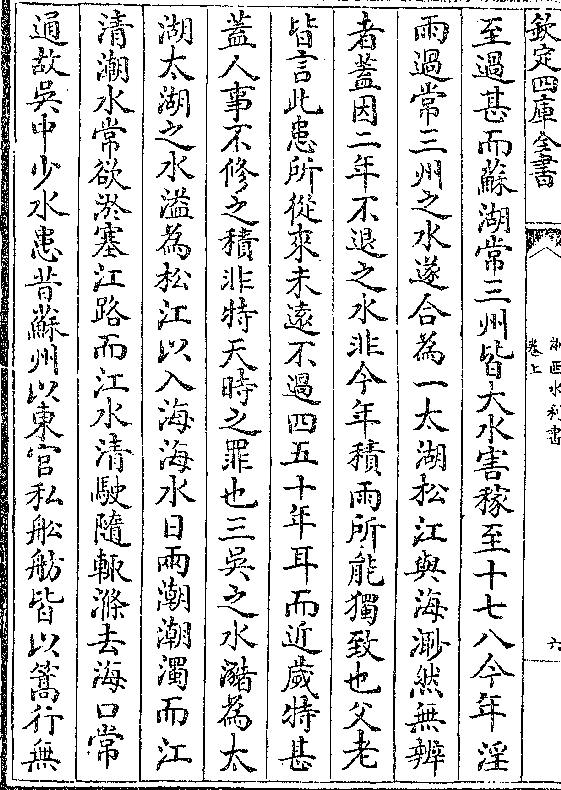 欽定四庫全書
浙西水利書
卷上
六
至過甚而蘇湖常三州皆大水害稼至十七八今年淫
雨過常三州之水遂合為一太湖松江與海渺然無辨
者蓋因二年不退之水非今年積雨所能獨致也父老
皆言此患所從來未遠不過四五十年耳而近歲特甚
蓋人事不修之積非特天時之罪也三吳之水瀦為太
湖太湖之水溢為松江以入海海水日兩潮潮濁而江
清潮水常欲淤塞江路而江水清駛隨輙滌去海口常
通故吳中少水患昔蘇州以東官私船舫皆以篙行無